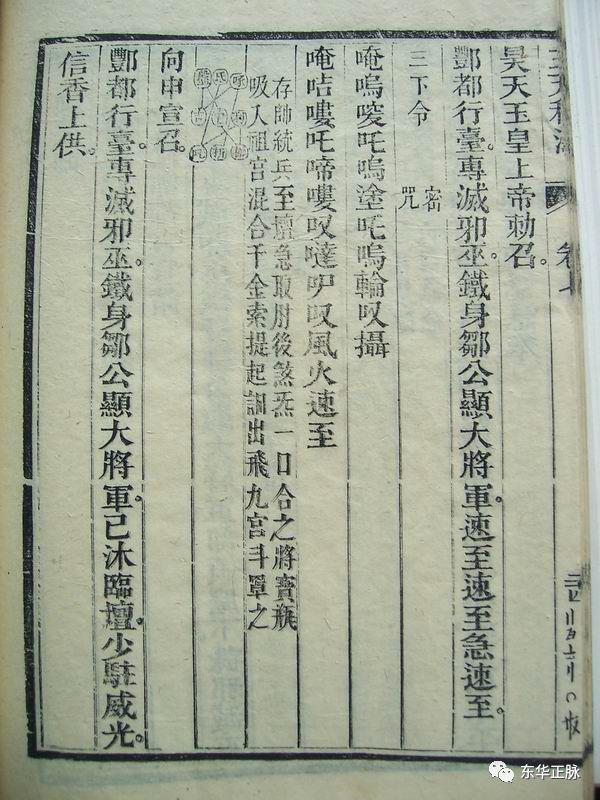 卷七
昊天玉皇上帝勅召。
酆都行臺。專滅邪巫。鐵身鄒公顯大將軍。速至速至急速至。
三下令
密
咒
唵嗚唆吒嗚塗吒嗚輪叹攝
唵咭嘍吒啼嘍叹噠叹風火速至
存帥統兵至壇急取肘後煞炁一口合之將寶瓶
吸入祖宮混合千金索提起出飛九宮斗罩之
向申宣召。
酆都行臺。專滅邪巫。鐵身鄒公顯大將軍。已沐臨壇。少駐威光。
信香上供。
东华正脉